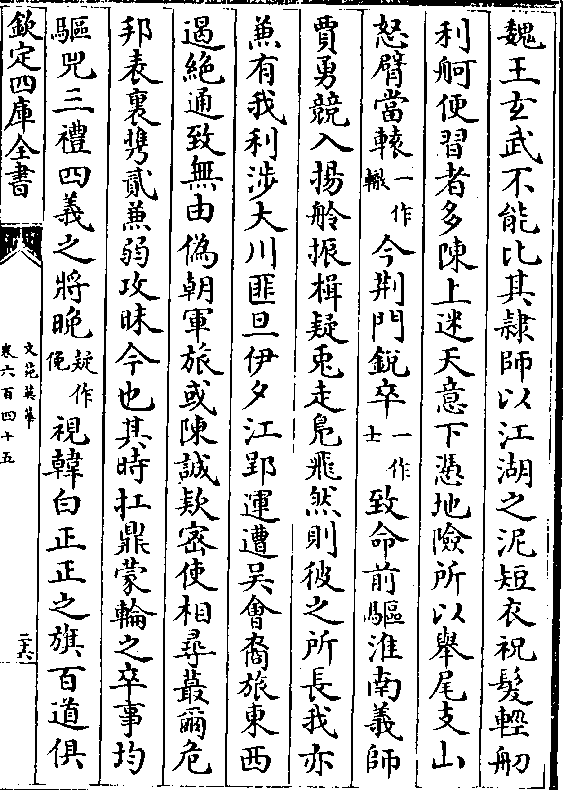 魏王玄武不能比其隷師以江湖之泥短衣祝髮輕舠
利舸便習者多陳上迷天意下憑地險所以舉尾支山
怒臂當轅一作轍今荆門鋭卒一作士致命前驅淮南義師
賈勇競入揚舲振楫疑兎走鳬飛然則彼之所長我亦
兼有我利涉大川匪旦伊夕江郢運遭吴會裔旅東西
遏絶通致無由偽朝軍旅或陳誠欵密使相尋蕞爾危
邦表裏携貳兼弱攻昧今也其時扛鼎蒙輪之卒事均
驅兕三禮四義之將晩疑作俛視韓白正正之旗百道俱
欽定四庫全書
文苑英華
卷六百四十五
二十六